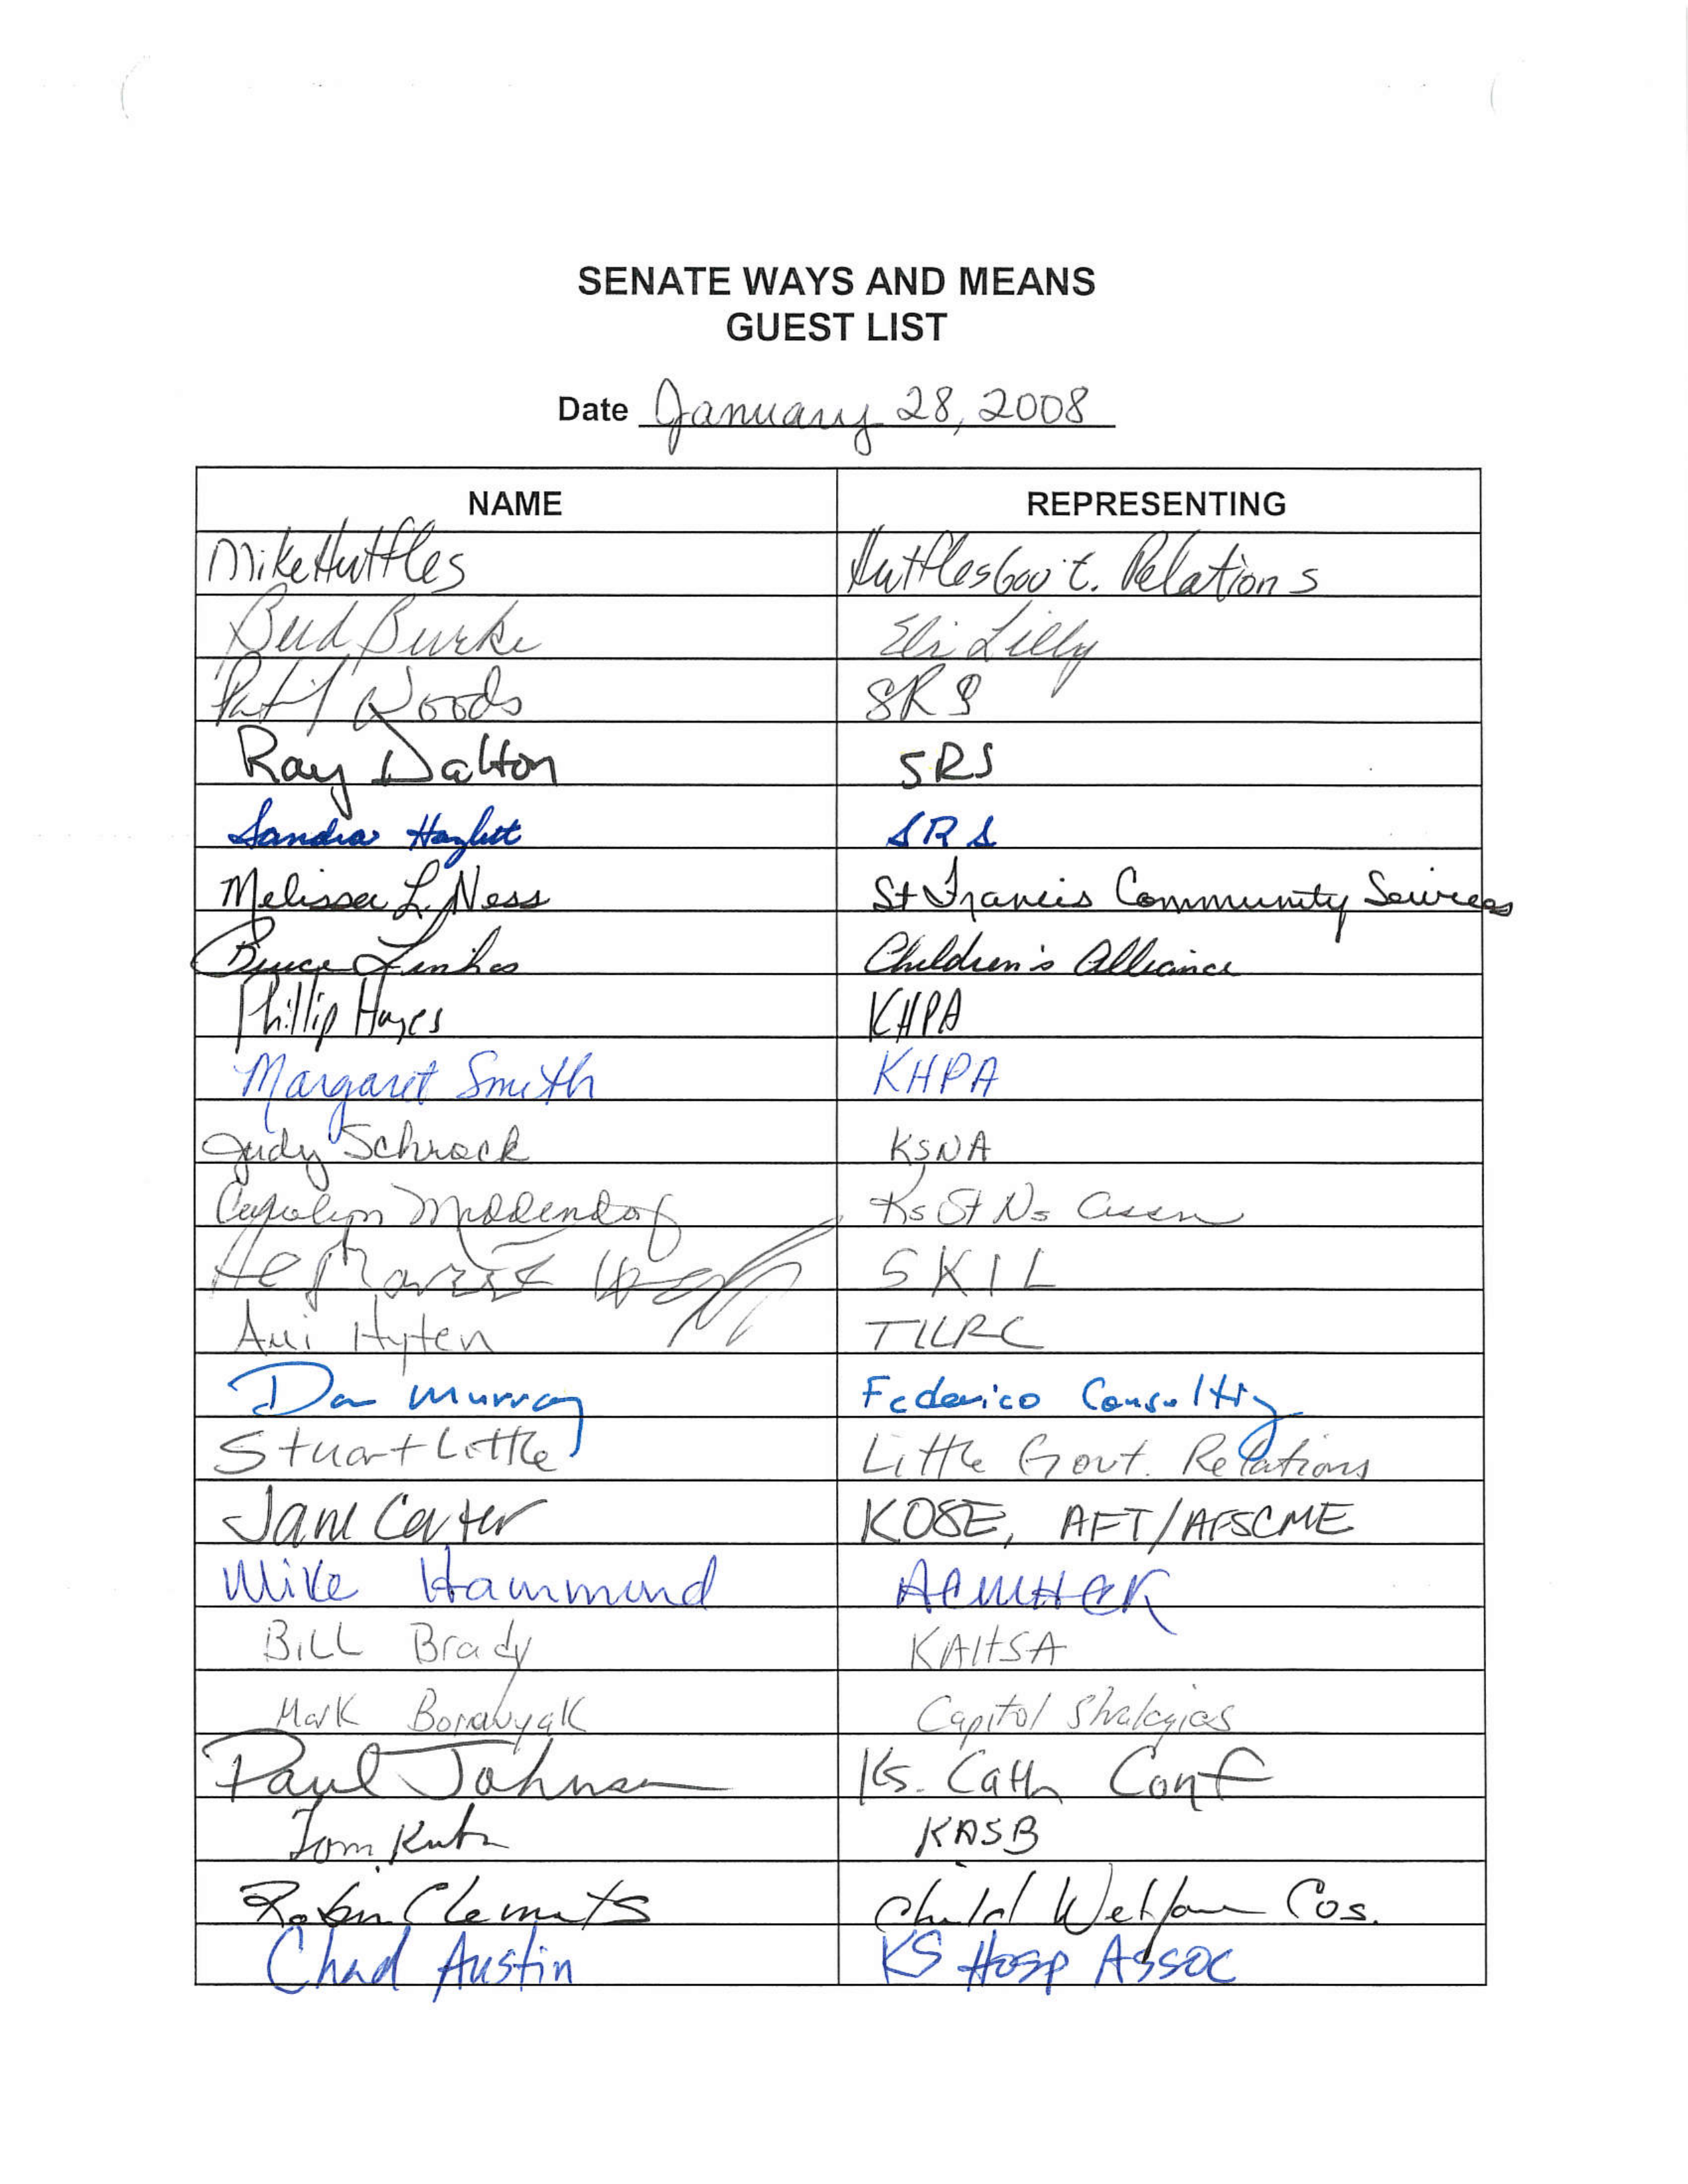 SENATE WAYS AND MEANS
GUEST LIST
Date January 28, 2008
NAME REPRESENTING
Mike Huttles Huttles Gov't. Relations
Bud Burke Eli Lilly
Woods SRS
Ray Dalton SRS
Sandra Hazlett SRS
Melissa L. Ness St Francis Community Services
Bruce Linhos Children's Alliance
Phillip Hayes KHPA
Margaret Smith KHPA
Judy Schrock KSNA
Carolyn Middendorf Ks St Ns Assn
SKIL
Ami Hyten TILRC
Dan Murray Federico Consulting
Stuart Little Little Govt. Relations
Jane Carter KOSE, AFT/AFSCME
Mike Hammond ACMHCK
BILL Brady KAHSA
Mark Boranyak Capitol Strategies
Paul Johnson Ks. Cath Conf
Tom KASB
Robin Clements Child Welfare Cos.
Chad Austin KS Hosp Assoc